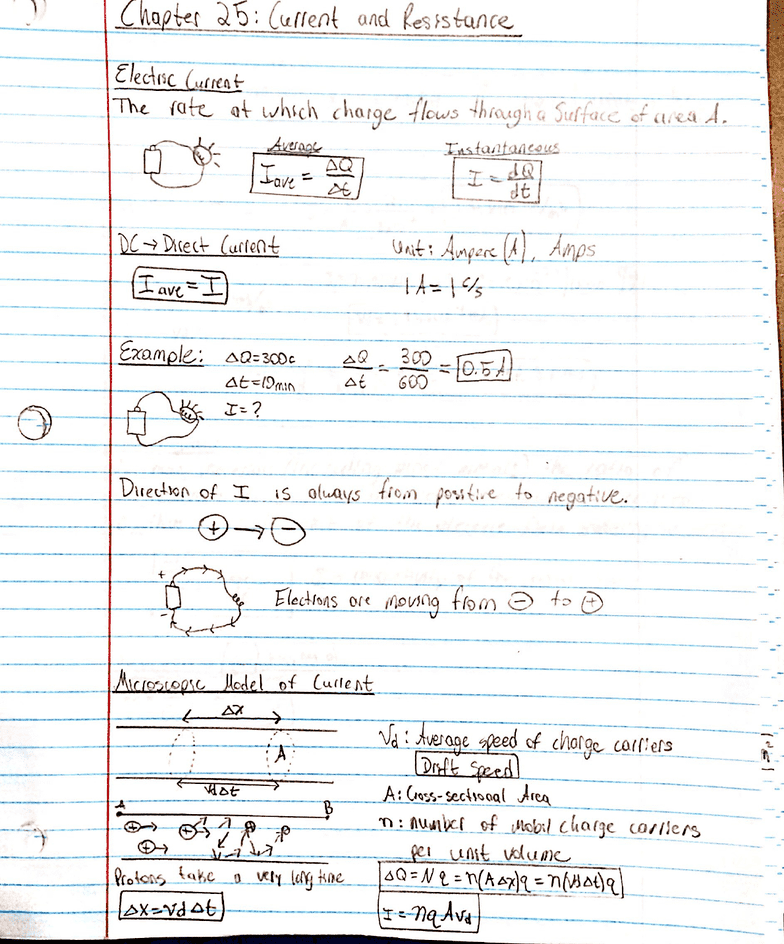 Chapter 25: Current and Resistance
Electric Current
The rate at which charge flows through a Surface of area A.
Average Instantaneous
I ave = ΔQ/Δt I = dQ/dt
DC → Direct Current Unit: Ampere (A), Amps
I ave = I 1 A = 1 C/s
Example: ΔQ=300c ΔQ/Δt = 300/600 = 0.5A
Δt=10min
I=?
Direction of I is always from positive to negative.
+ → -
+ Electrons are moving from ⊖ to ⊕
-
Microscopic Model of Current
Δx
Vd: Average speed of charge carriers
A
Drift Speed
vdΔt
A: Cross-sectional Area
A B
n: number of mobil charge carriers
per unit volume
Protons take a very long time ΔQ = Nq = n(AΔx)q = n(VdΔt)q
Δx=vdΔt I = nqAvd